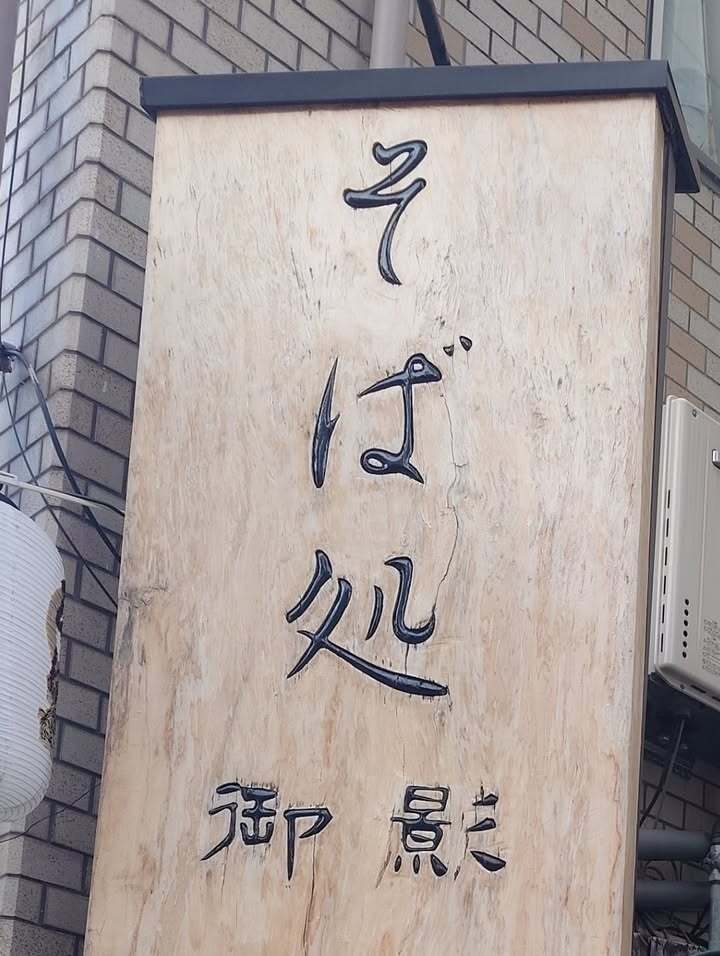 そば処
御影